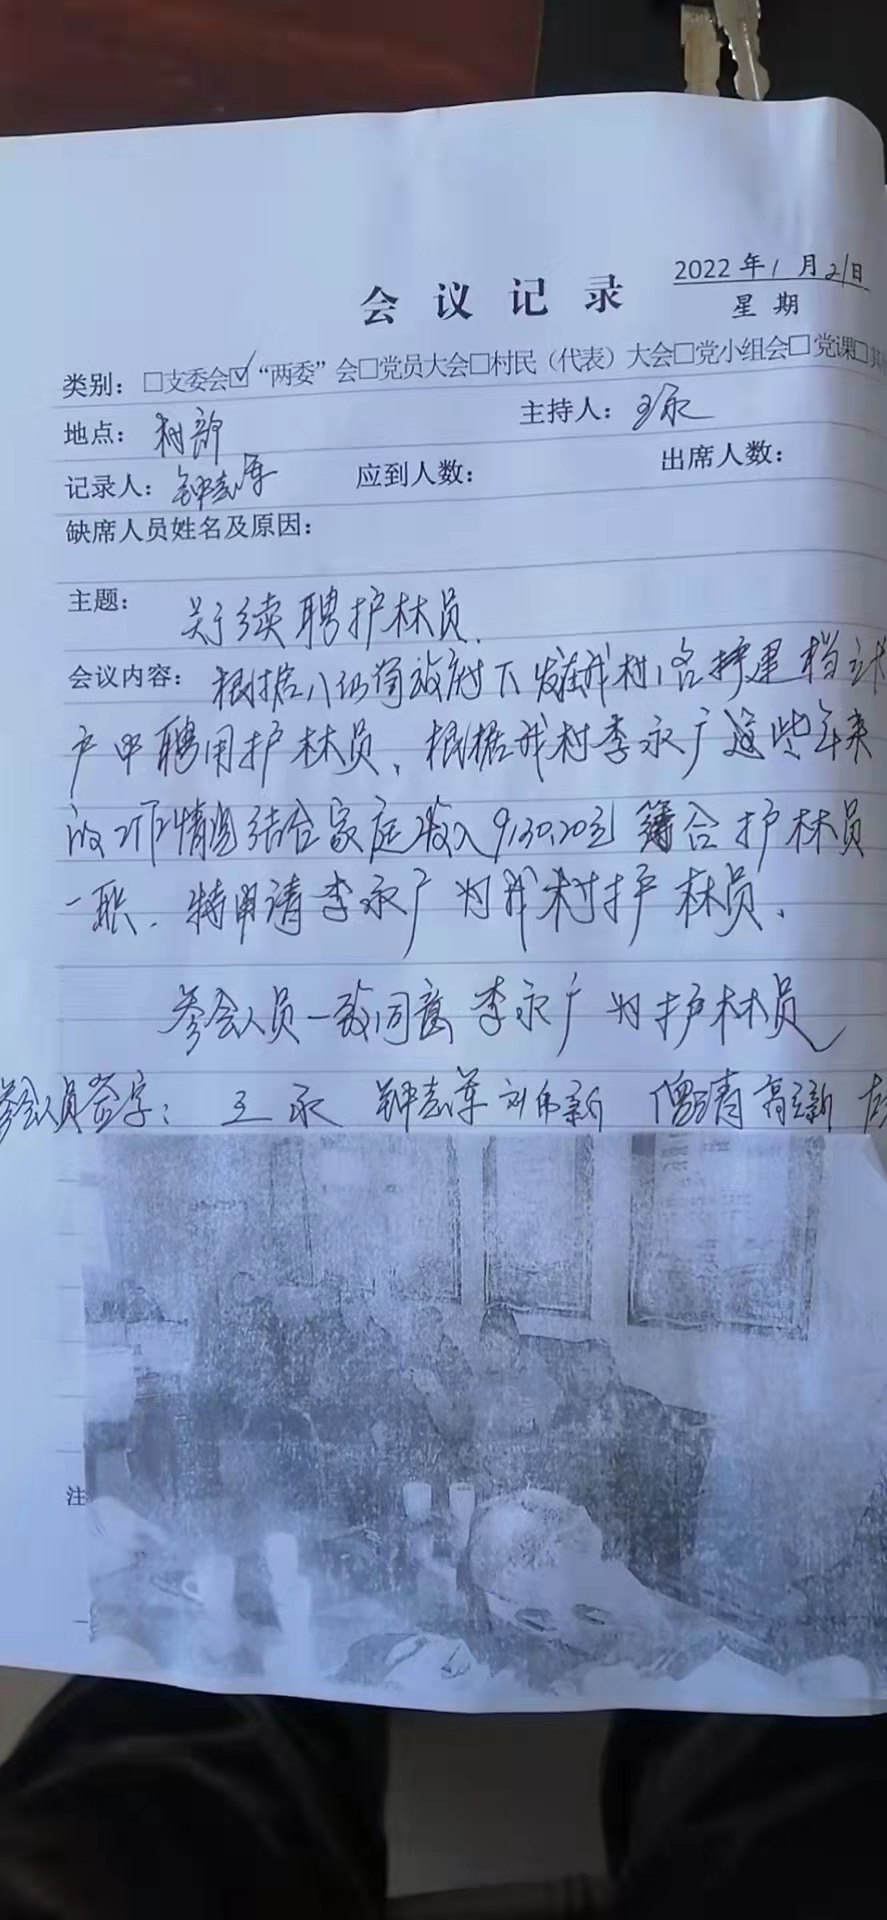 2022年1月21日
会议记录
星期
类别：□支委会☑“两委”会□党员大会□村民（代表）大会□党小组会□党课□其
地点：村部 主持人：王永
记录人：钟志军 应到人数： 出席人数：
缺席人员姓名及原因：
主题：关于续聘护林员.
会议内容：根据八仙筒政府下发在我村1名 建档立卡
户中聘用护林员、根据我村李永广这些年来
的工作情况结合家庭收入9130.20元 符合护林员
一职.特申请李永广为我村护林员.
参会人员一致同意李永广为护林员
参会人员签字：王永 钟志军 刘伟新 高立新
注